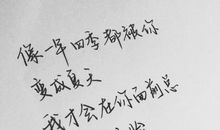 像一年四季都被你
变成夏天
我才会在你面前总